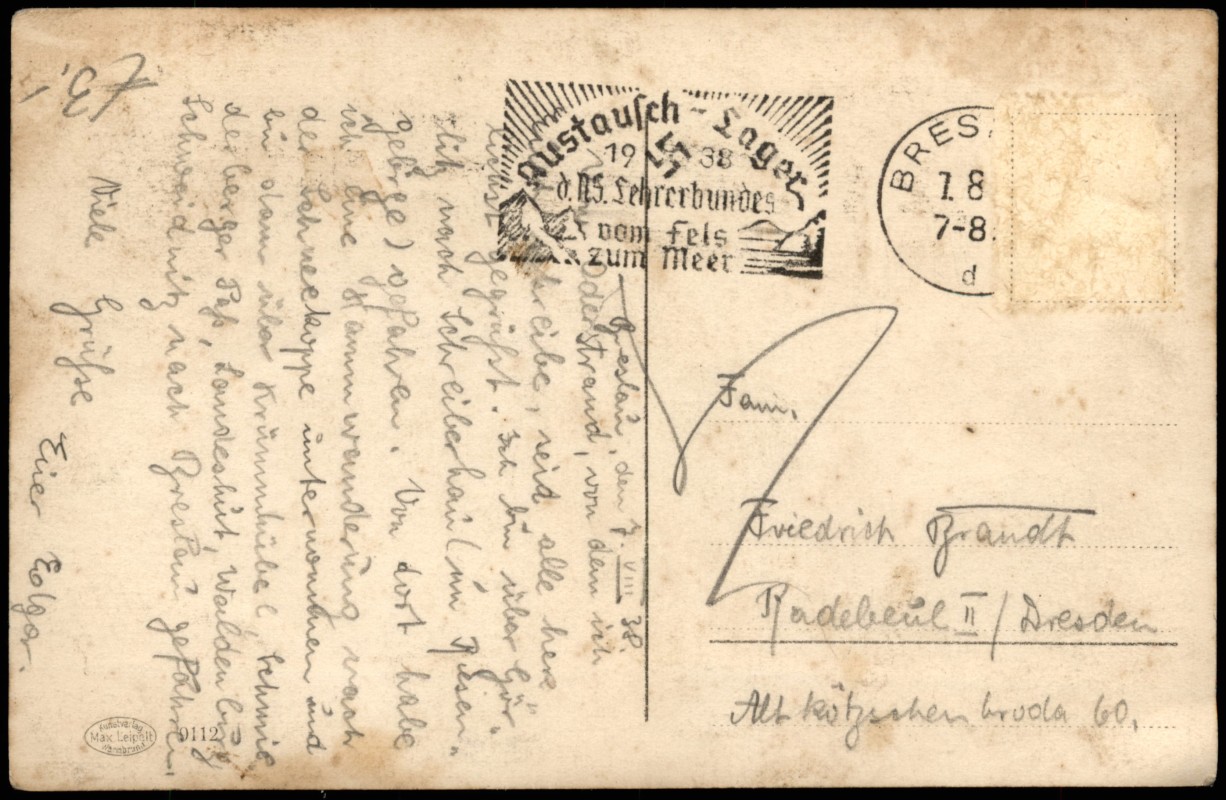 Austausch-Lager
19 38
d. NS. Lehrerbundes
vom Fels
zum Meer
BRES
7.8
7-8.
d
Breslau, den 7. VIII. 38.
Oderstrand, von dem ich
schreibe, seid alle herz-
lichst gegrüßt. Ich bin über Gör-
litz nach Schreiberhau (im Riesen-
gebirge) gefahren. Von dort habe
ich eine Kammwanderung nach
der Schneekoppe unternommen und
bin dann über Krummhübel, Schmie-
deberger Paß, Landeshut, Waldenburg,
Schweidnitz nach Breslau gefahren.
Viele Grüße
Euer Edgar.
Fam.
Friedrich Brandt
Radebeul II / Dresden
Altkötzschenbroda 60.
Kunstverlag
Max Leipelt
Warmbrunn
0112